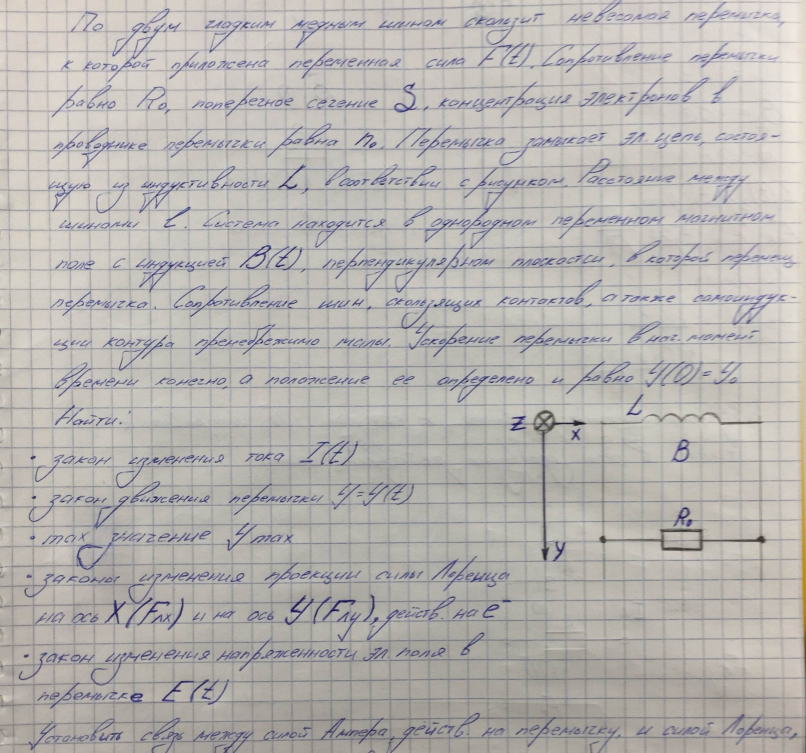 По двум гладким медным шинам скользит невесомая перемычка,
к которой приложена переменная сила F(t). Сопротивление перемычки
равно R₀, поперечное сечение S, концентрация электронов в
проводнике перемычки равна n₀. Перемычка замыкает эл. цепь, состоя-
щую из индуктивности L, в соответствии с рисунком. Расстояние между
шинами l. Система находится в однородном переменном магнитном
поле с индукцией B(t), перпендикулярном плоскости, в которой перемещ
перемычка. Сопротивление шин, скользящих контактов, а также самоиндук-
ции контура пренебрежимо малы. Ускорение перемычки в нач. момент
времени конечно, а положение ее определено и равно y(0)=y₀
Найти:
· закон изменения тока I(t)
· закон движения перемычки y=y(t)
· max значение y max
· законы изменения проекции силы Лоренца
на ось X(Fлx) и на ось Y(Fлy), действ. на e⁻
· закон изменения напряженности эл. поля в
перемычке E(t)
Установить связь между силой Ампера, действ. на перемычку, и силой Лоренца,
L
Z
X
B
R₀
y